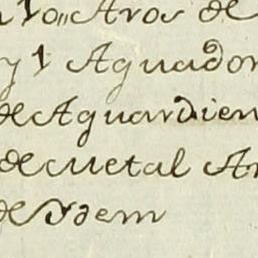 Aros de
y 1 Aguador
de Aguardien
de Metal Ar
de Ydem